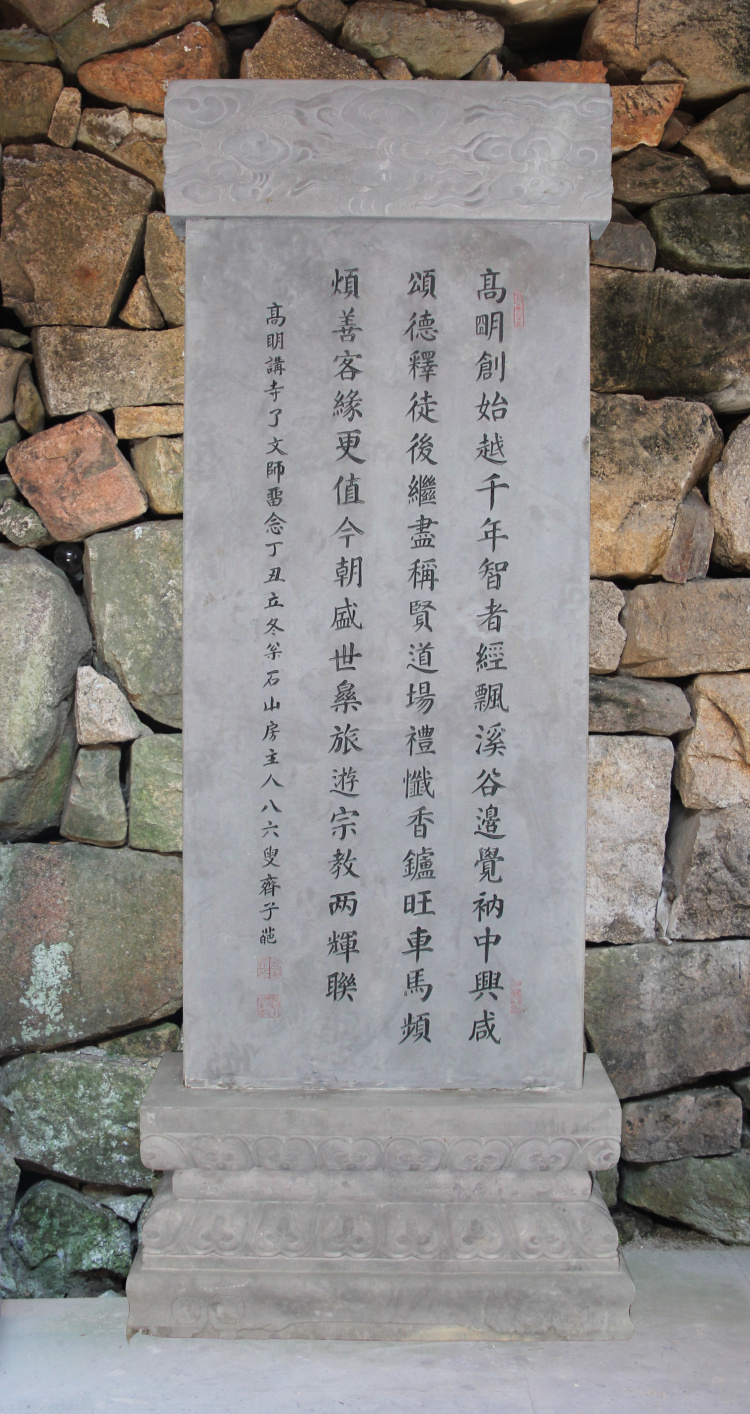 髙朙創始越千年智者經飄溪谷邊覺衲中興咸
頌德釋徒後繼盡稱賢道場禮懺香鑪旺車馬頻
煩善客緣更值今朝盛世旅遊宗教两輝聯
髙明講寺了文師畱念丁丑立冬石山房主人八六叟齊子